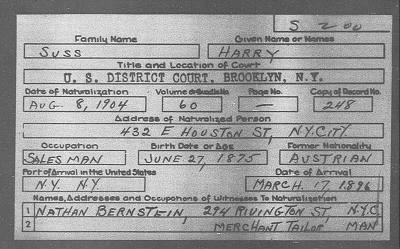 S 200
Family Name Given Name or Names
SUSS HARRY
Title and Location of Court
U. S. DISTRICT COURT, BROOKLYN, N.Y.
Date of Naturalization Volume or Bundle No. Page No. Copy of Record No.
AUG. 8, 1904 60 — 248
Address of Naturalized Person
432 E HOUSTON ST, N.Y.CITY
Occupation Birth Date or Age Former Nationality
SALESMAN JUNE 27, 1875 AUSTRIAN
Port of Arrival in the United States Date of Arrival
N.Y. N.Y. MARCH. 17, 1896
Names, Addresses and Occupations of Witnesses To Naturalization
1 NATHAN BERNSTEIN, 294 RIVINGTON ST, N.Y.C
2 MERCHANT TAILOR MAN